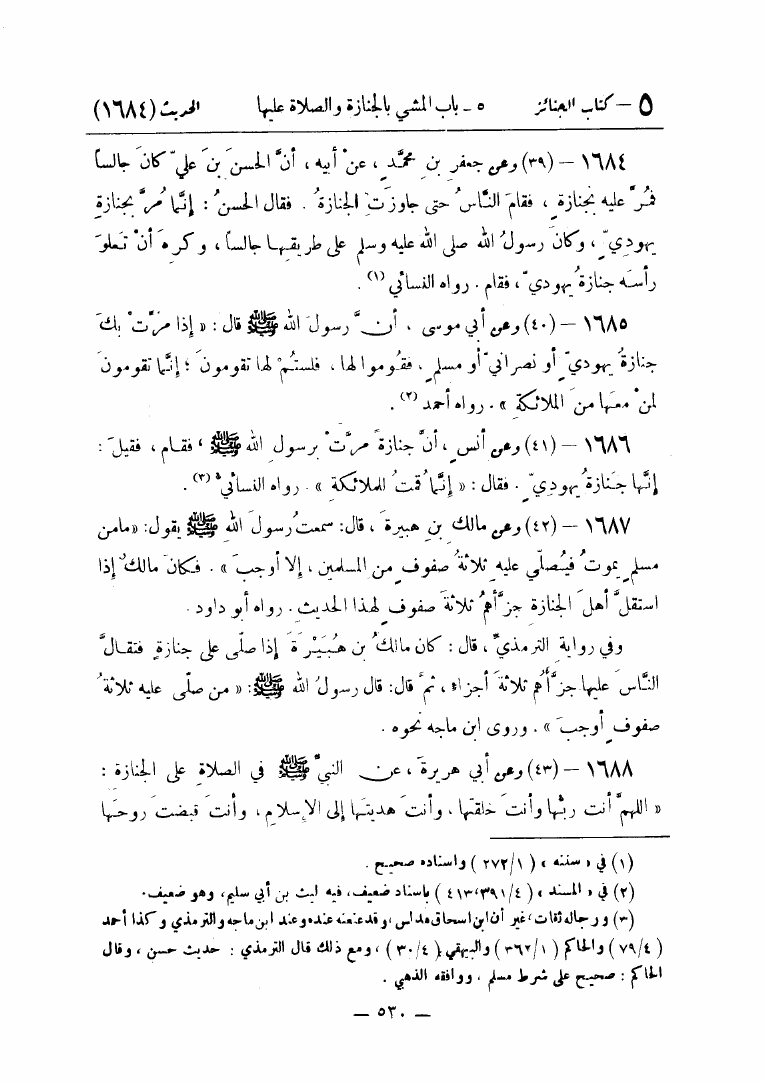 ٥ – كتاب الجنائز ٥ ـ باب المشي بالجنازة والصلاة عليها الحديث (١٦٨٤)
١٦٨٤ – (٣٩) وعن جعفر بنِ محمَّدٍ ، عنْ أبيه ، أنَّ الحسنَ بنَ عليّ كانَ جالساً
فمُرَّ عليه بجنازةٍ ، فقامَ النَّاسُ حتى جاوزَتِ الجنازةُ . فقال الحسنُ : إنَّما مُرَّ بجنازةِ
يهوديّ ٍ ، وكانَ رسولُ الله صلى الله عليه وسلم على طريقِها جالساً ، وكرِهَ أنْ تَعلوَ
رأسَه جنازةُ يهوديّ ، فقام . رواه النسائي (١) .
١٦٨٥ – (٤٠) وعن أبي موسى ، أنَّ رسولَ الله ﷺ قال : « إذا مرَّتْ بكَ
جنازةُ يهوديّ ٍ أو نصرانيّ ٍ أو مسلمٍ ، فقُوموا لها ، فلستُمْ لها تقومونَ ؛ إنَّما تقومونَ
لمنْ معَها منَ الملائكةِ » . رواه أحمد (٢) .
١٦٨٦ – (٤١) وعن أنسٍ ، أنَّ جنازةً مرَّتْ برسولِ الله ﷺ ، فقامَ ، فقيلَ :
إنَّها جنازةُ يهوديّ ٍ . فقال : « إنَّما قمتُ للملائكةِ » . رواه النسائيّ (٣) .
١٦٨٧ – (٤٢) وعن مالك بنِ هبيرةَ ، قال : سمعتُ رسولَ الله ﷺ يقول : «مامن
مسلمٍ يموتُ فيُصلّي عليه ثلاثةُ صفوفٍ من المسلمين ، إلا أوجبَ » . فكانَ مالكٌ إذا
استقلَّ أهلَ الجنازةِ جزَّأهُم ثلاثةَ صفوفٍ لهذا الحديث . رواه أبو داود .
وفي روايةِ الترمذيِّ ، قال : كان مالكُ بن هُبَيْرَةَ إذا صلّى على جنازةٍ فتقالَّ
النَّاسَ عليها جزَّأَهُم ثلاثةَ أجزاءٍ ، ثمَّ قال : قال رسولُ الله ﷺ : « من صلّى عليه ثلاثةُ
صفوفٍ أوجبَ » . وروى ابن ماجه نحوه .
١٦٨٨ – (٤٣) وعن أبي هريرةَ ، عن النبيِّ ﷺ في الصلاةِ على الجنازة :
« اللهمَّ أنت ربُّها وأنتَ خلقتَها ، وأنتَ هديتَها إلى الإسلامِ ، وأنتَ قبضتَ روحَها
(١) في « سننه » ( ٢٧٢/١ ) واسناده صحيح .
(٢) في « المسند » ( ٤١٣،٣٩١/٤ ) باسناد ضعيف ، فيه ليث بن أبي سليم ، وهو ضعيف .
(٣) ورجاله ثقات ، غير أن ابن اسحاق مدلس ، وقد عنعنه عنده وعند ابن ماجه والترمذي وكذا أحمد
( ٧٩/٤ ) والحاكم ( ٣٦٢/١ ) والبيهقي ( ٣٠/٤ ) ، ومع ذلك قال الترمذي : حديث حسن ، وقال
الحاكم : صحيح على شرط مسلم ، ووافقه الذهبي .
– ٥٣٠ –